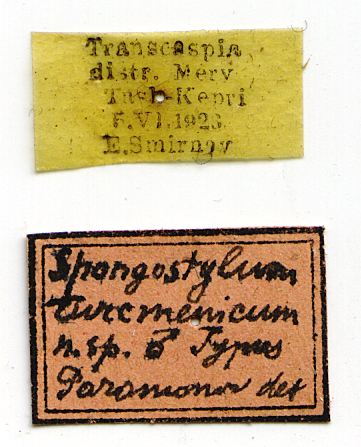 Transcaspia
distr. Merv
Tash-Kepri
5.VI.1923
E.Smirnov
Spongostylum
turcmenicum
n.sp. ♂ Typus
Paramonov det